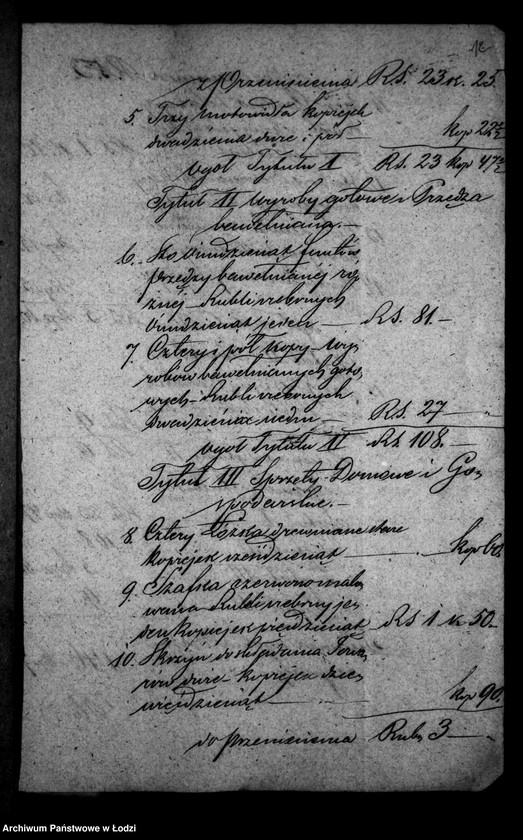 12
z przeniesienia Rs. 23 k. 25.
5. Trzy motowidła kopiejek
dwadzieścia dwie i pół — kop 22 1/2
ogół Tytułu I Rs. 23 kop 47 1/2
Tytuł II wyroby gotowe i Przędza
bawełniana. —
6. Sto ośmdziesiąt funtów
przędzy bawełnianéj róż-
znej — Rubli srebrnych
ośmdziesiąt jeden — Rs. 81. —
7. Cztery i pół kopy — wy-
robów bawełnianych goto-
wych — Rubli srebrnych
dwadzieścia siedm — Rs. 27 —
ogół Tytułu II Rs 108. —
Tytuł III Sprzęty Domowe i Gos-
podarskie. —
8. Cztery łóżka drewniane stare
kopiejek sześdziesiąt — kop 60.
9. Szafka czerwono malo-
wana Rubli srebrny je-
den kopiejek pięćdziesiąt Rs 1 k 50. —
10. Skrzyń do składania Towa-
rów dwie — kopiejek dzie-
więćdziesiąt — kop 90.
do przeniesienia Rubs 3 —
Archiwum Państwowe w Łodzi